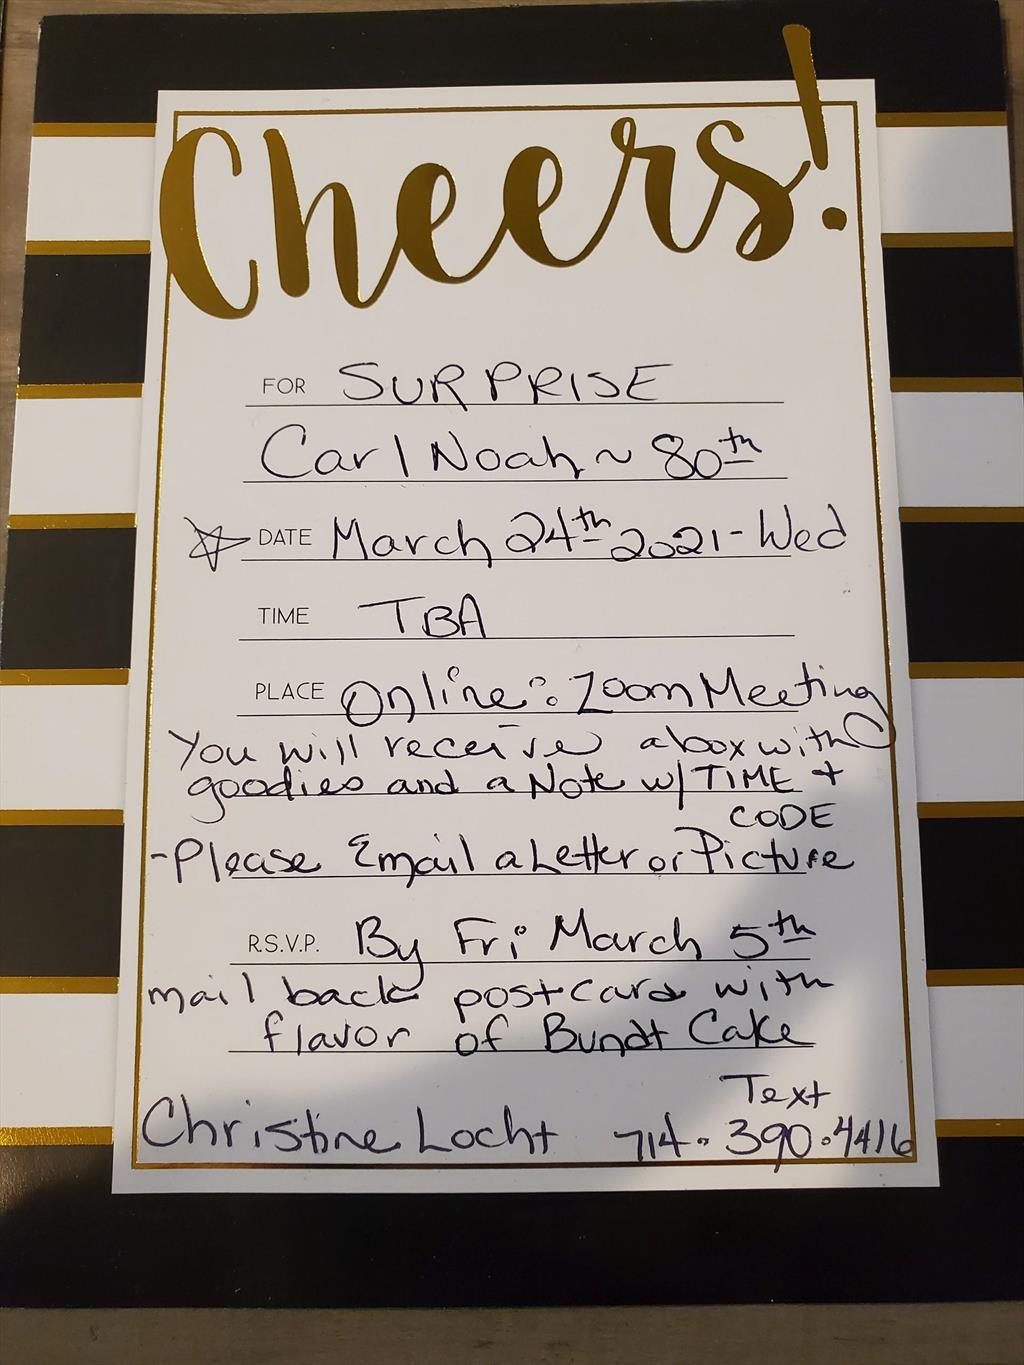 Cheers!
FOR SURPRISE
Carl Noah ~ 80th
DATE March 24th 2021 - Wed
TIME TBA
PLACE Online: Zoom Meeting
You will receive a box with
goodies and a Note w/ TIME +
CODE
- Please Email a Letter or Picture
R.S.V.P. By Fri March 5th
mail back postcard with
flavor of Bundt Cake
Text
Christine Locht 714.390.4416